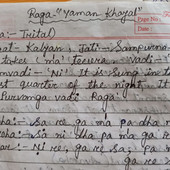 Raga-"Yaman Khayal"
Page No.
:- Trital)
at- Kalyan, Jati- Sampurna
(ma' Teevra, Vadi-
vadi- 'Ni' It is Sung in t
st quarter of the Night, It
Purvanga vadi Raga.
ha:- Sa re ga ma pa dha n
oha:- Sa ni dha pa ma ga r
- Ni re, ga re Sa, Pa m
ga re